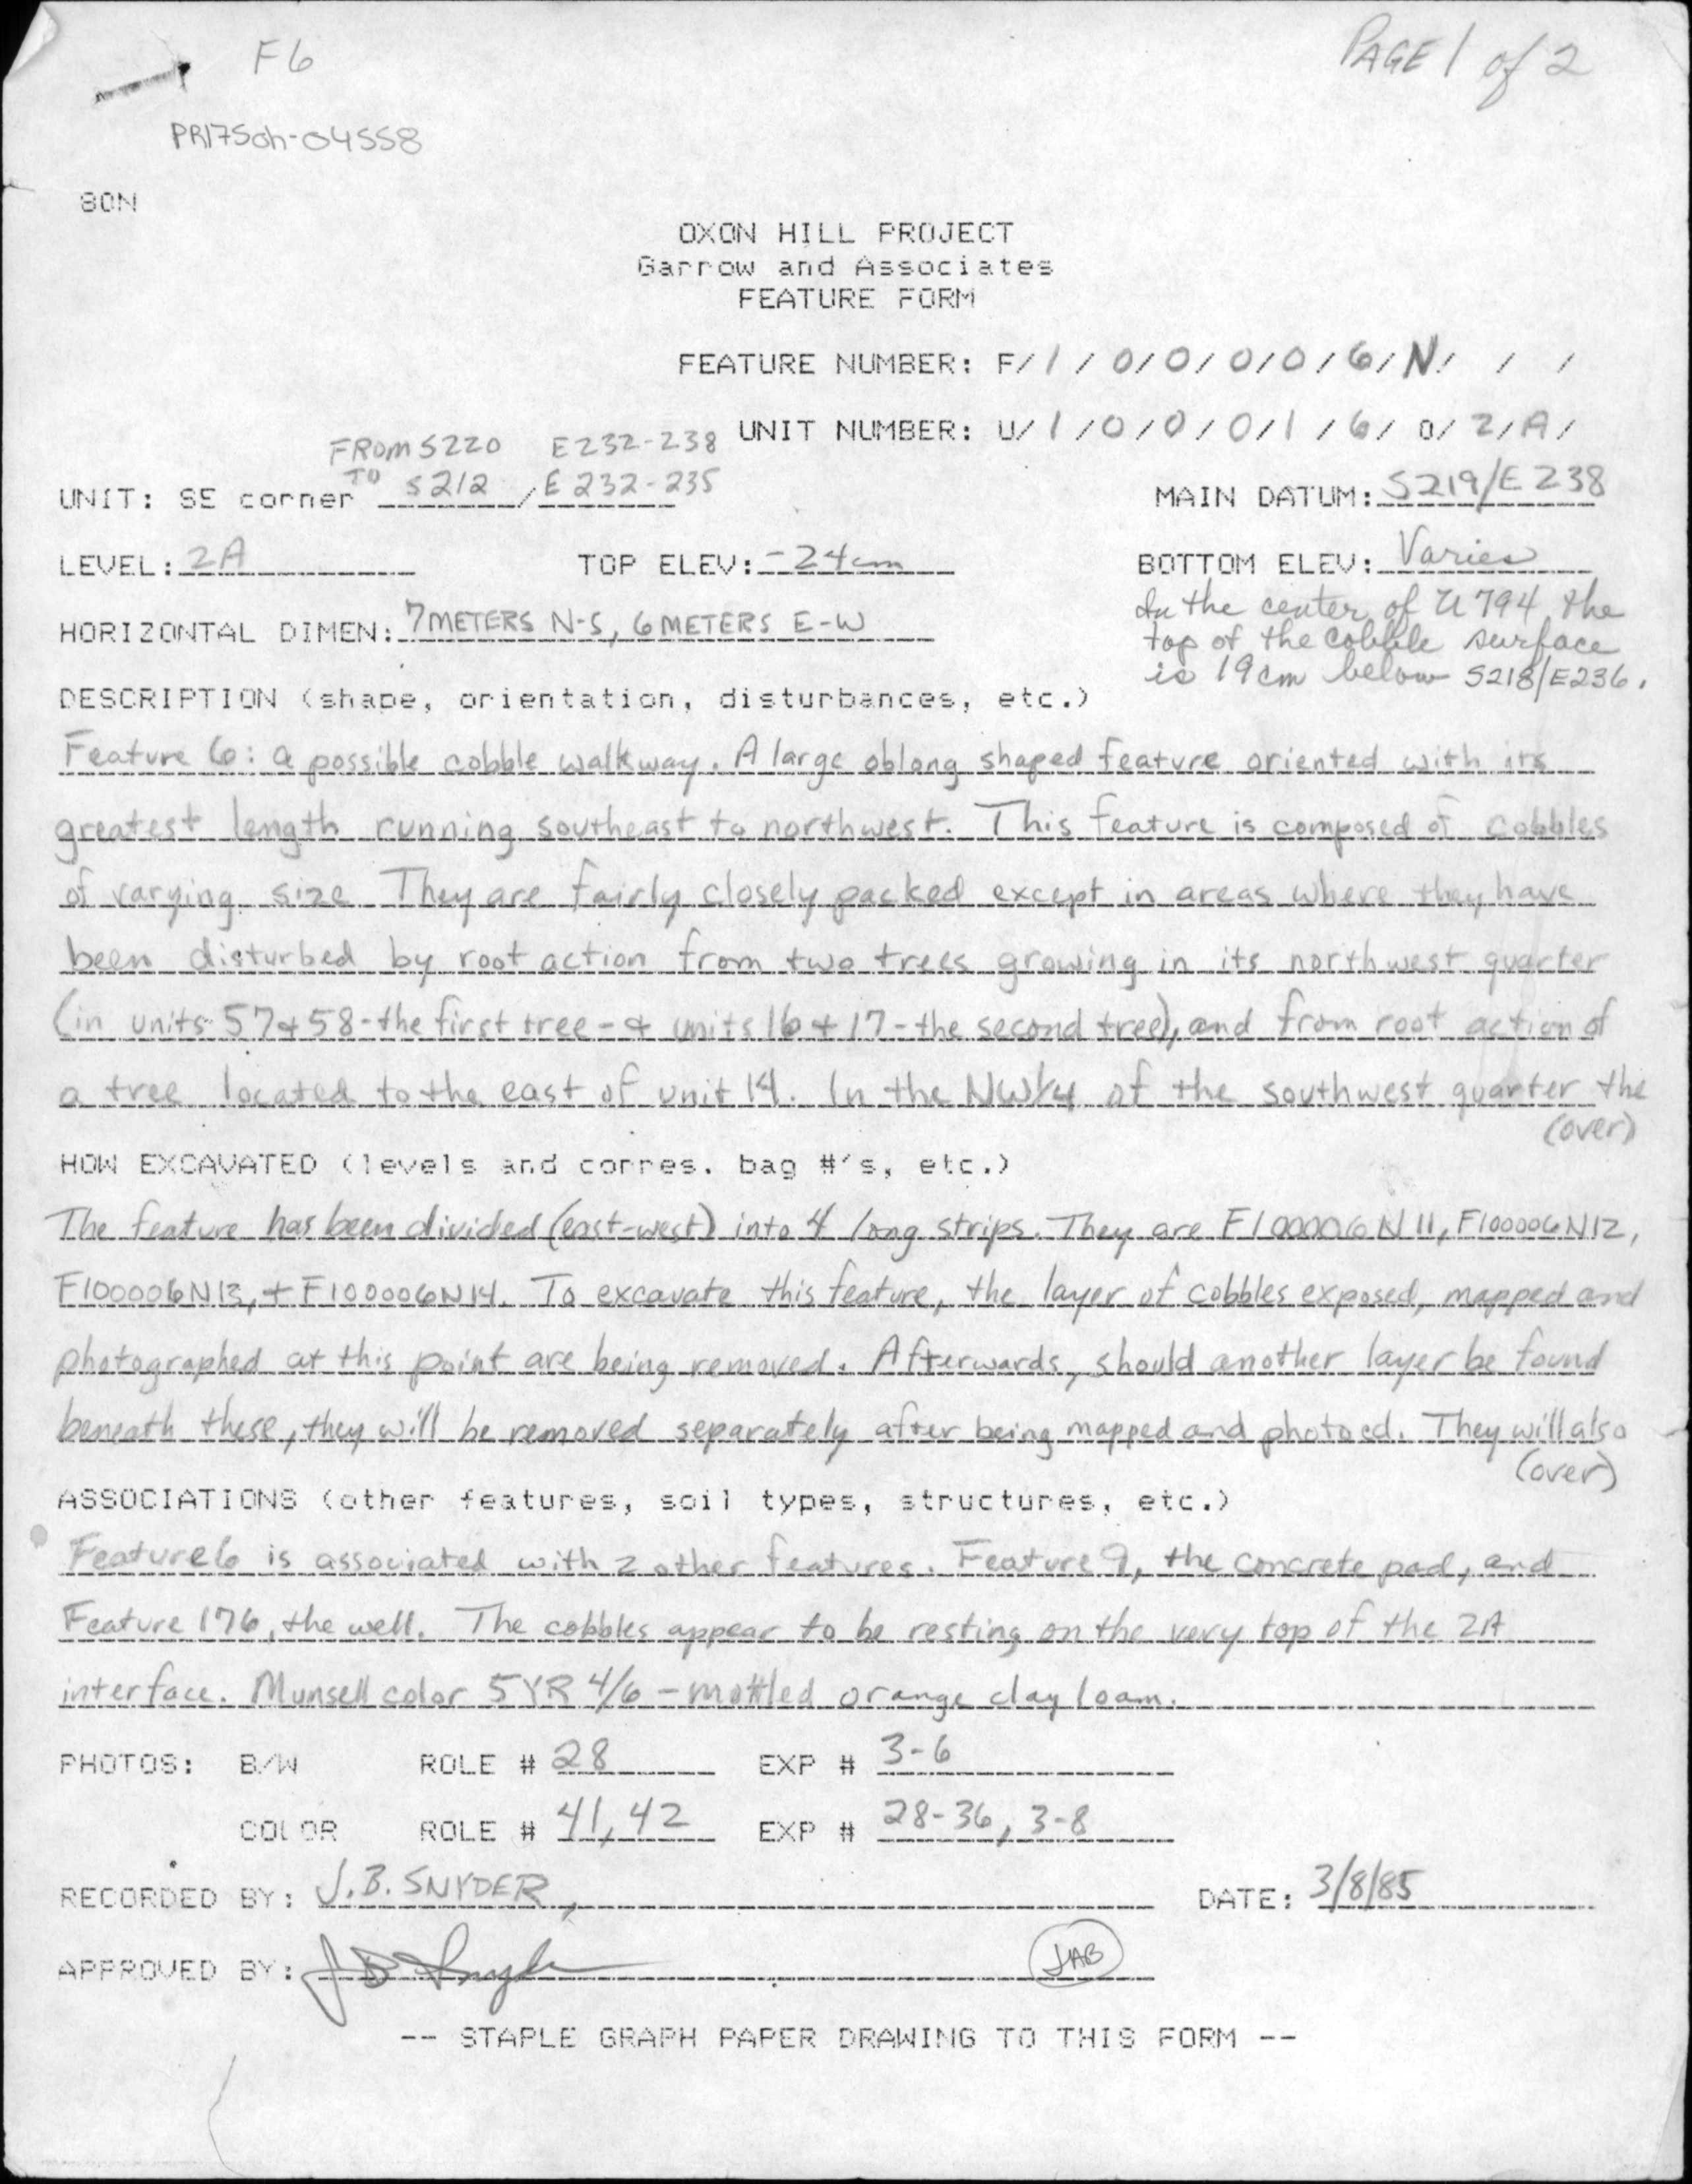 F6
PAGE 1 of 2
PR175oh-04558
80N
OXON HILL PROJECT
Garrow and Associates
FEATURE FORM
FEATURE NUMBER: F/1/0/0/0/0/6/N/ / /
UNIT NUMBER: U/1/0/0/0/1/6/0/2/A/
FROM S220 E232-238
UNIT: SE corner TO S212 / E232-235
MAIN DATUM: S219/E238
LEVEL: 2A TOP ELEV: -24cm BOTTOM ELEV: Varies
In the center of U794 the
top of the cobble surface
is 19cm below S218/E236.
HORIZONTAL DIMEN: 7 METERS N-S, 6 METERS E-W
DESCRIPTION (shape, orientation, disturbances, etc.)
Feature 6: a possible cobble walkway. A large oblong shaped feature oriented with its
greatest length running southeast to northwest. This feature is composed of cobbles
of varying size They are fairly closely packed except in areas where they have
been disturbed by root action from two trees growing in its northwest quarter
(in units 57+58-the first tree-+ units 16+17-the second tree), and from root action of
a tree located to the east of unit 14. In the NW1/4 of the southwest quarter the
(over)
HOW EXCAVATED (levels and corres. bag #'s, etc.)
The feature has been divided (east-west) into 4 long strips. They are F100006N11, F100006N12,
F100006N13, + F100006N14. To excavate this feature, the layer of cobbles exposed, mapped and
photographed at this point are being removed. Afterwards, should another layer be found
beneath these, they will be removed separately after being mapped and photoed. They will also
(over)
ASSOCIATIONS (other features, soil types, structures, etc.)
Feature 6 is associated with 2 other features. Feature 9, the concrete pad, and
Feature 176, the well. The cobbles appear to be resting on the very top of the 2A
interface. Munsell color 5YR 4/6 - mottled orange clay loam.
PHOTOS: B/W ROLE # 28 EXP # 3-6
COLOR ROLE # 41,42 EXP # 28-36, 3-8
RECORDED BY: J.B. SNYDER, DATE: 3/8/85
APPROVED BY: JB Snyder JAB
-- STAPLE GRAPH PAPER DRAWING TO THIS FORM --